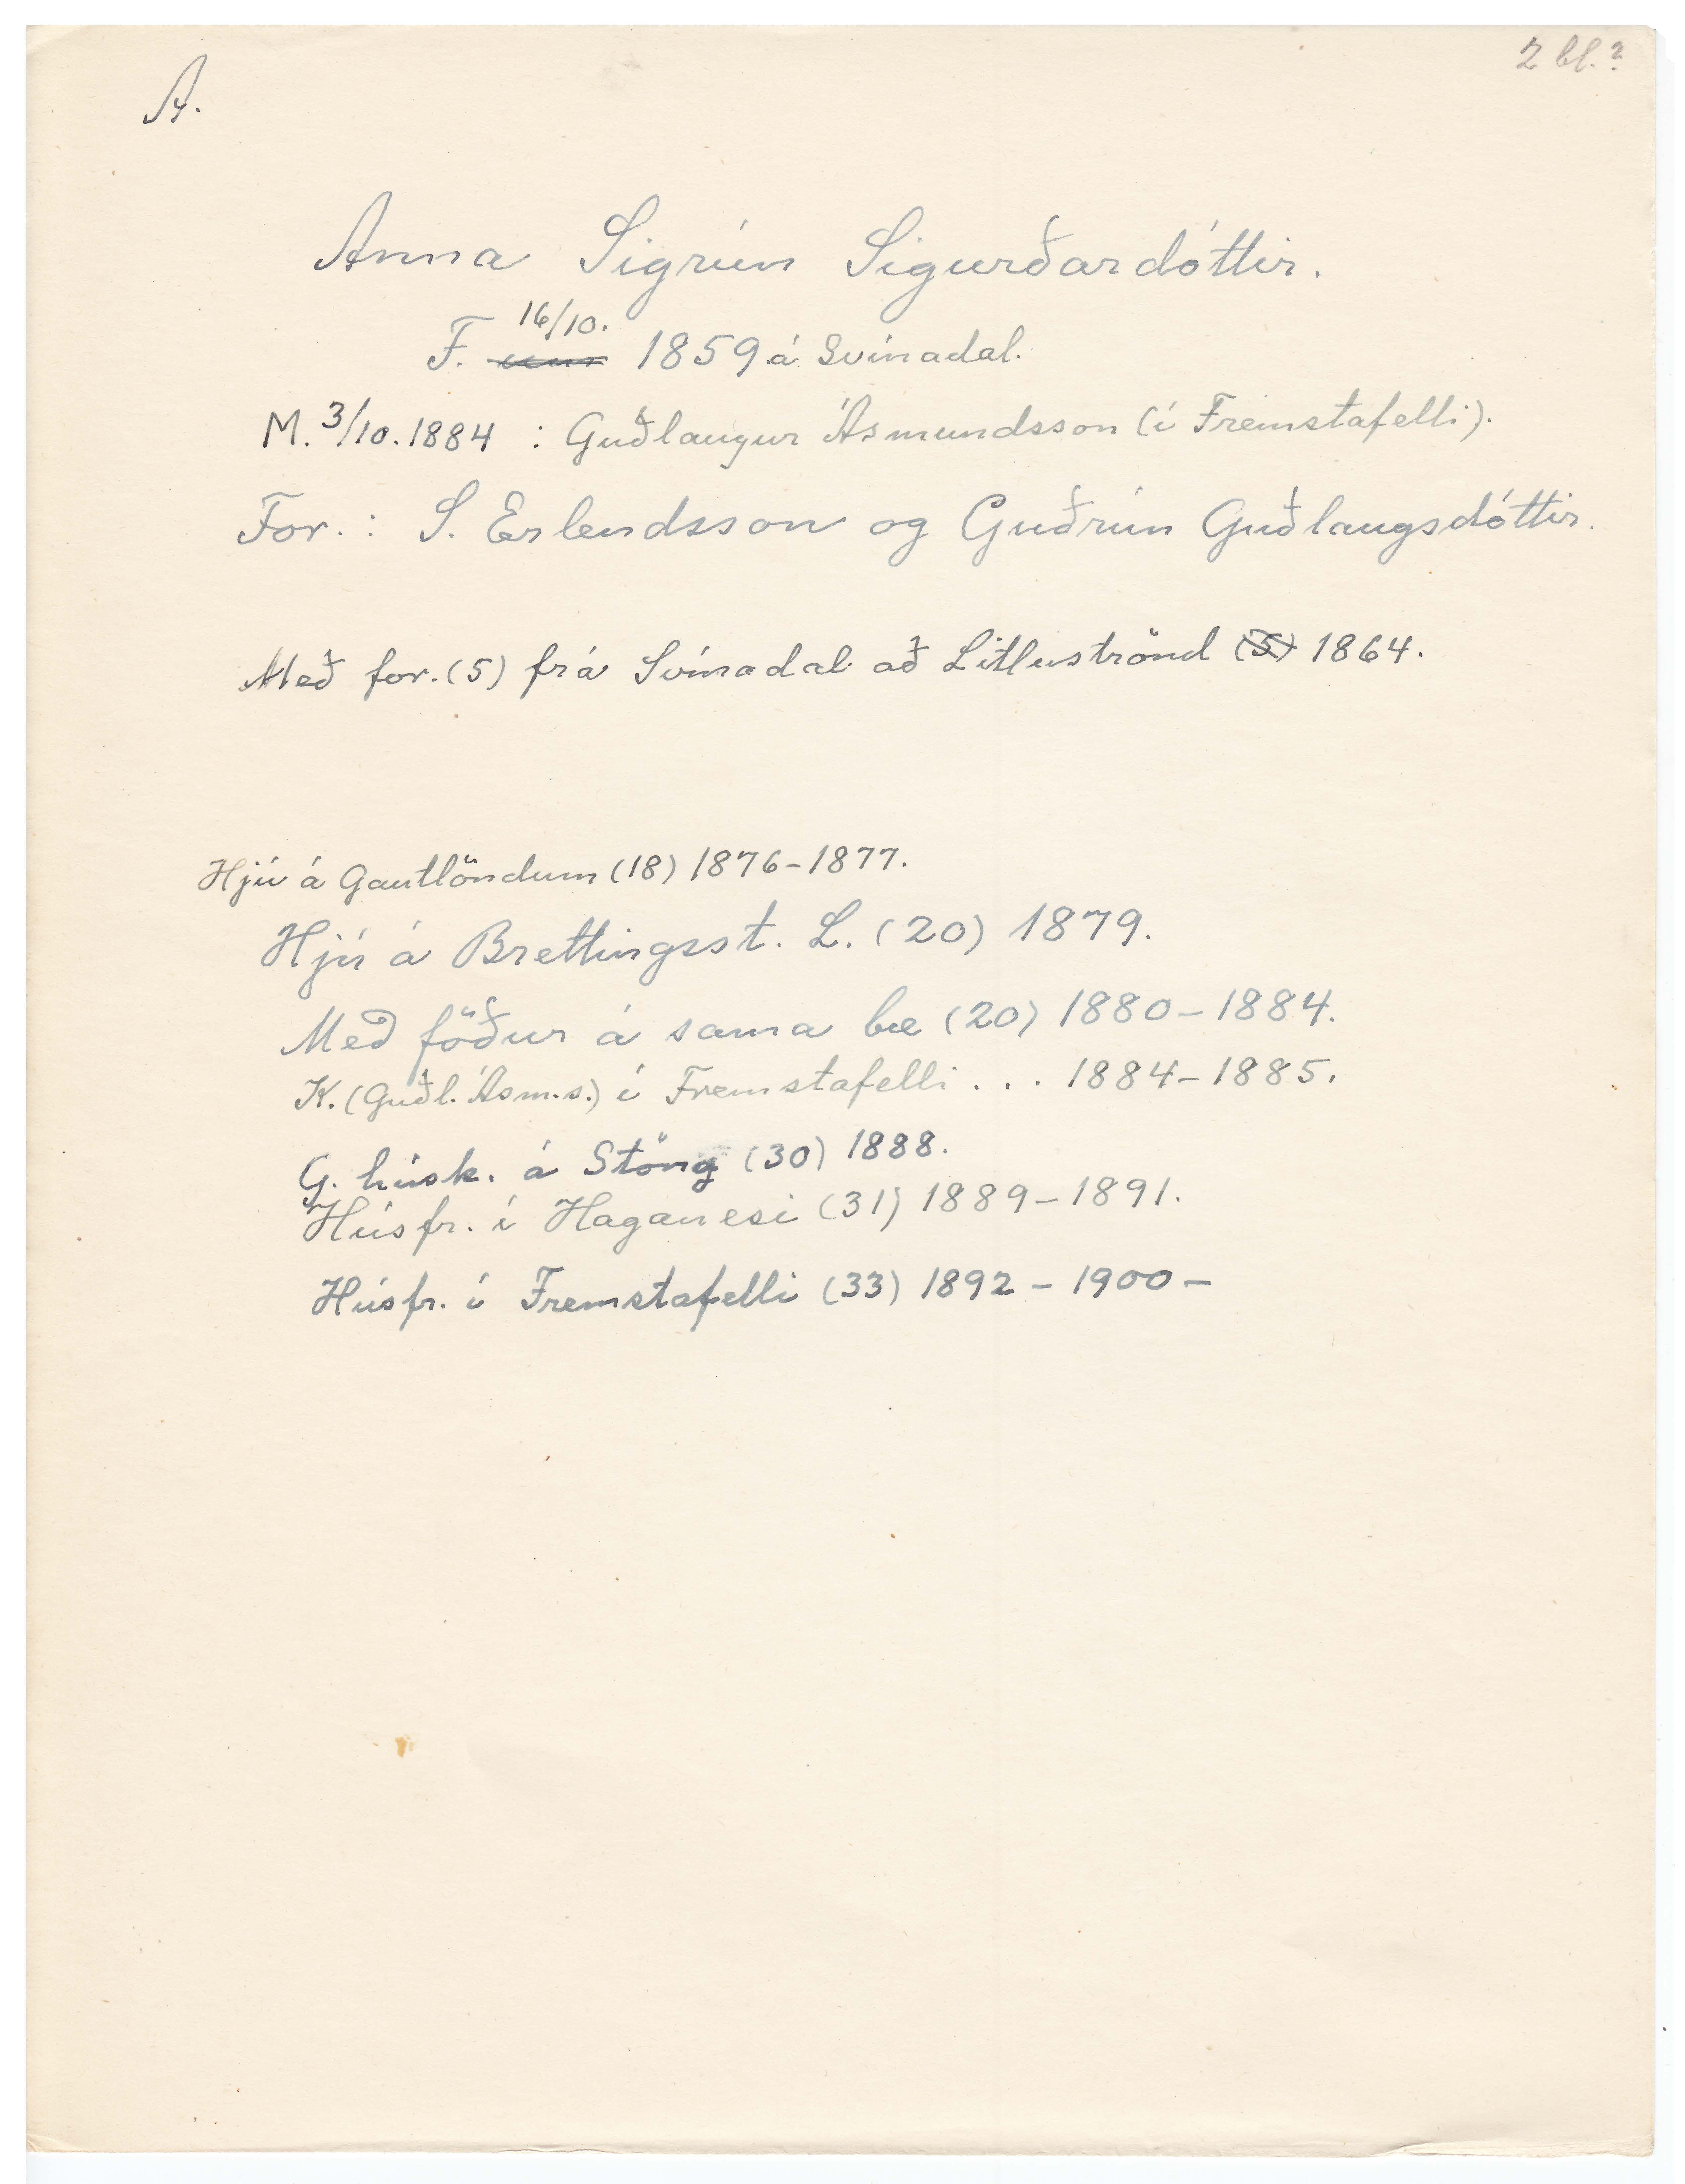 2 bl.?
A.
Anna Sigrún Sigurðardóttir.
16/10.
F. 1859 á Svínadal.
M. 3/10. 1884 : Guðlaugur Ásmundsson (í Fremstafelli).
For. : S. Erlendsson og Guðrún Guðlaugsdóttir.
Með for. (5) frá Svínadal að Litluströnd (5) 1864.
Hjú á Gautlöndum (18) 1876-1877.
Hjú á Brettingsst. L. (20) 1879.
Með föður á sama bæ (20) 1880-1884.
K. (Guðl. Ásm.s.) í Fremstafelli . . . 1884-1885.
G. húsk. á Stöng (30) 1888.
Húsfr. í Haganesi (31) 1889-1891.
Húsfr. í Fremstafelli (33) 1892 - 1900 -